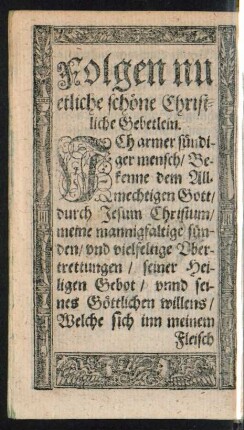 Folgen nu
etliche schöne Christ⸗
liche Gebetlein.
ICh armer sündi⸗
ger mensch/ Be⸗
kenne dem All⸗
mechtigen Gott/
durch Jesum Christum/
meine mannigfaltige sün⸗
den/ vnd vielfeltige Vber⸗
trettungen/ seiner Hei⸗
ligen Gebot/ vnnd sei⸗
nes Göttlichen willens/
Welche sich inn meinem
Fleisch